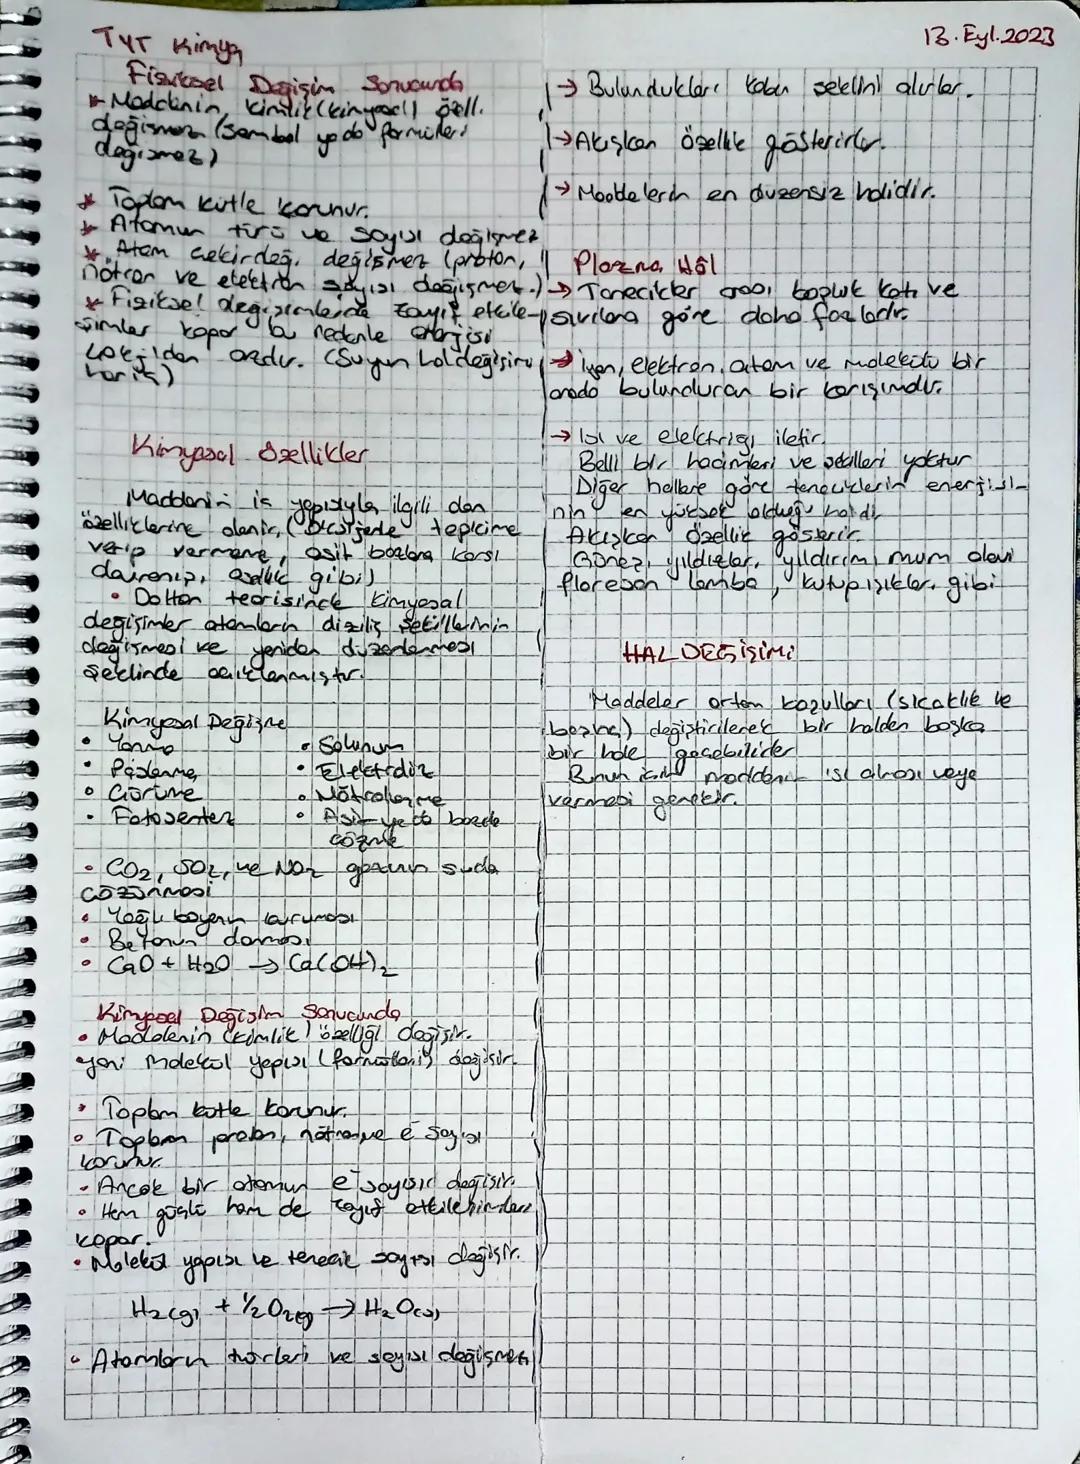 TYT Kimya
13.Eyl.2023
Fiziksel Değişim Sonucunda
* Maddenin kimlik (kimyasal) özell.
değişmez (sembol ya da formülleri
değişmez)
* Toplam kütle korunur.
* Atomun türü ve sayısı değişmez
* Atom çekirdeği değişmez (proton,
nötron ve elektron sayısı değişmez.)
* Fiziksel değişimlerde zayıf etkile-
şimler kopar bu nedenle enerjisi
azdır. (Suyun hal değişimi
hariç)
Kimyasal Özellikler
Maddenin iç yapısıyla ilgili olan
özelliklerine denir. ( tepkime
verip vermeme, asit bazlara karşı
davranışı, asitlik gibi)
• Dalton teorisinde kimyasal
değişimler atomların diziliş şekillerinin
değişmesi ve yeniden düzenlenmesi
şeklinde açıklanmıştır.
Kimyasal Değişme
• Yanma
• Paslanma
• Çürüme
• Fotosentez
• Solunum
• Elektroliz
• Nötrolleşme
• Asit ya da bazda
çözme
• CO2, SO2, ve NO2 gazının suda
çözünmesi
• Yağlı boyanın kuruması
• Betonun donması
• CaO + H2O → Ca(OH)2
Kimyasal Değişim Sonucunda
• Maddenin (kimlik) özelliği değişir.
yani molekül yapısı (formülleri) değişir.
• Toplam kütle korunur.
• Toplam proton, nötron ve e⁻ sayısı
korunur.
• Ancak bir atomun e⁻ sayısı değişir.
• Hem güçlü hem de zayıf etkileşimleri
kopar.
• Molekül yapısı ve tanecik sayısı değişir.
H2(g) + 1/2 O2(g) → H2O(s)
• Atomların türleri ve sayısı değişmez
→ Bulundukları kabın şeklini alırlar.
→ Akışkan özellik gösterirler.
→ Maddelerin en düzensiz halidir.
Plazma Hâl
→ Tanecikler arası boşluk katı ve
sıvılara göre daha fazladır.
→ iyon, elektron, atom ve molekülü bir
arada bulunduran bir karışımdır.
→ Isı ve elektriği iletir.
Belli bir hacimleri ve şekilleri yoktur
Diğer hallere göre taneciklerin enerjisi-
nin en yüksek olduğu haldir
Akışkan özellik gösterir.
Güneş, yıldızlar, yıldırım, mum alevi
floresan lamba, kutup ışıkları gibi
HAL DEĞİŞİMİ
Maddeler ortam koşulları (sıcaklık ve
basınç) değiştirilerek bir halden başka
bir hale geçebilirler
Bunun için maddenin ısı alması veya
vermesi gerekir.